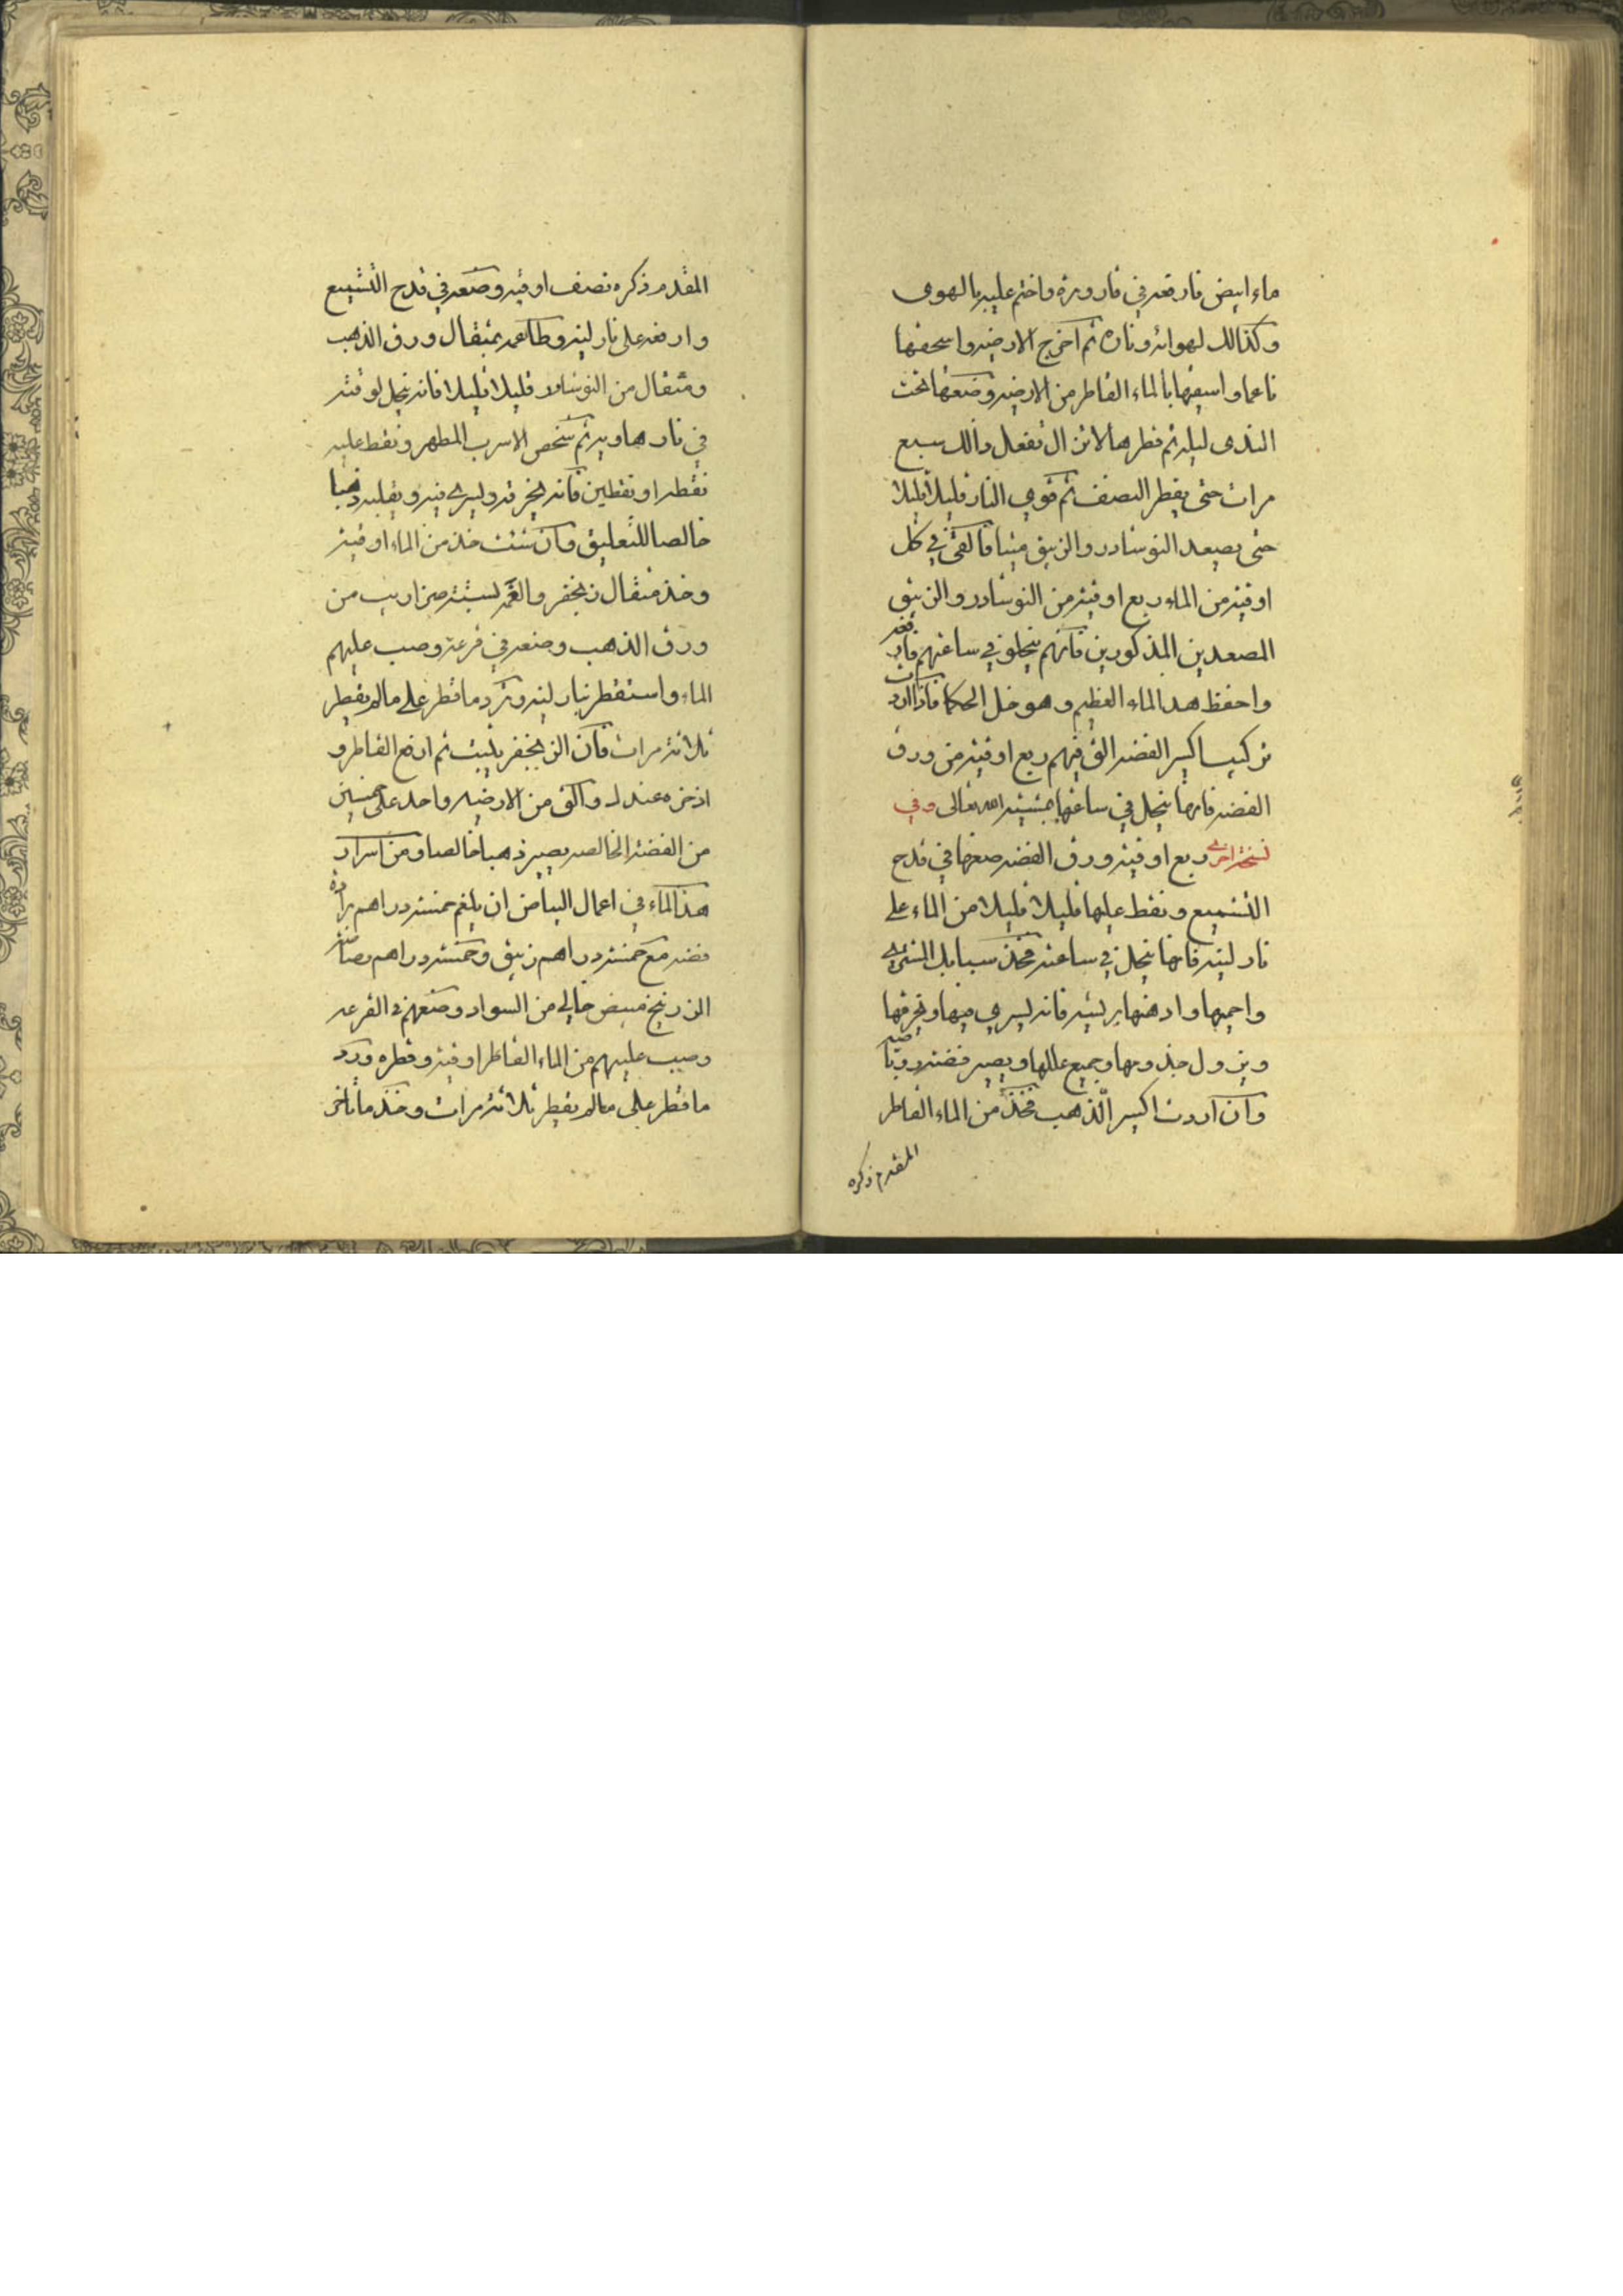 ماء ابيض فارفعه في قارورة واختم عليه بالهوى
وكذالك لهوائه وناره ثم اخرج الارضيه واسحقها
ناعما واسقها بالماء القاطر من الارضيه وضعها تحت
الندى ليله ثم قطرها لاتزال تفعل ذالك سبع
مرات حتى يقطر النصف ثم قوي النار قليلا قليلا
حتى يصعد النوشادر والزيبق فالقى في كل
اوقيه من الماء ربع اوقيه من النوشادر والزيبق
المصعدين المذكورين فانهم ينحلو في ساعتهم فارفعه
واحفظ هذا الماء العظيم وهو خل الحكما فاذا اردت
تركيب اكسير الفضه الق فيهم ربع اوقيه من ورق
الفضه فانها ينحل في ساعتها بمشيئة الله تعالى وفي
نسخة اخرى ربع اوقيه ورق الفضه ضعها في قدح
التشميع ونقط عليها قليلا قليلا من الماء على
نار لينه فانها ينحل في ساعته فخذ سبايك المشتري
واحميها وادهنها بريشه فانه يسري فيها ويخرقها
ويزول جذومها وجميع عللها ويصير فضه روباصيه
وان اردت اكسير الذهب فخذ من الماء القاطر
المقدم ذكره
المقدم ذكره نصف اوقيه وضعه في قدح التشميع
وارفعه على نار لينه وطاعمه بمثقال ورق الذهب
ومثقال من النوشادر قليلا قليلا فانه ينحل لوقته
في نار هاديه ثم شخص الاسرب المطهر ونقط عليه
نقطه او نقطين فانه يخرقه ويسري فيه ويقلبه ذهبا
خالصا للتعليق وان شئت خذ من الماء اوقيه
وخذ مثقال زنجفر والغمه بسته من
ورق الذهب وضعه في قرعه وصب عليهم
الماء واستقطر بنار لينه وترد ما قطر على مالم يقطر
ثلاثة مرات فان الزنجفر يثبت ثم ارفع القاطر و
اذخره عندك والق من الارضيه واحد على خمسين
من الفضه الخالصه يصير ذهبا خالصا ومن اسرار
هذا الماء في اعمال البياض ان يلغم خمسة دراهم برادة
فضه مع خمسة دراهم زيبق وخمسة دراهم
الزرنيخ مبيض خالي من السواد وضعهم في القرعه
وصب عليهم من الماء القاطر اوقيه وقطره ورد
ما قطر على مالم يقطر ثلاثة مرات وخذ ما تاخر